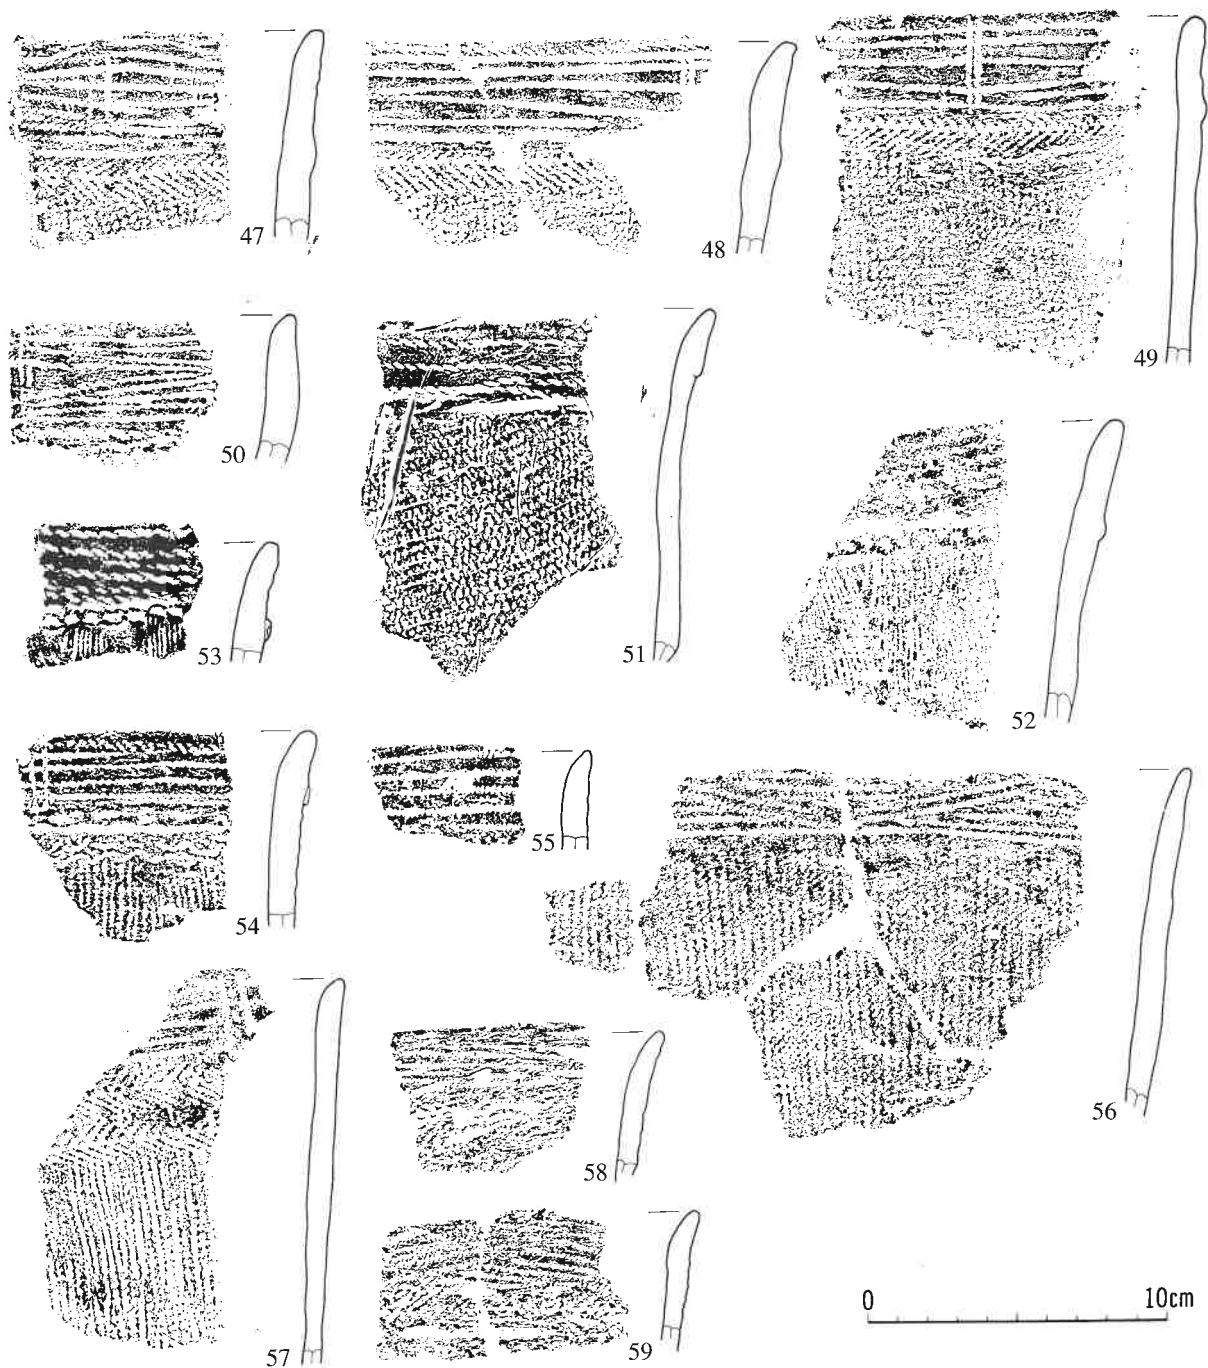 47
48
49
50
51
52
53
54
55
56
57
58
59
0
10cm